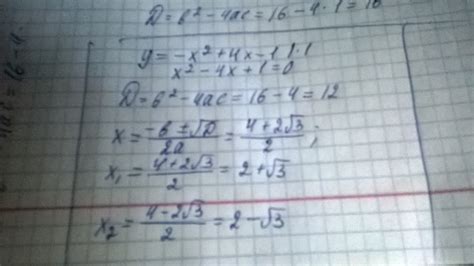 D = b² - 4ac = 16 - 4 · 1 = 16
y = -x² + 4x - 1 | · 1
x² - 4x + 1 = 0
D = b² - 4ac = 16 - 4 = 12
x = \frac{-b ± √D}{2a} = \frac{4 + 2√3}{2} ;
x₁ = \frac{4 + 2√3}{2} = 2 + √3
x₂ = \frac{4 - 2√3}{2} = 2 - √3
= 16 - 4